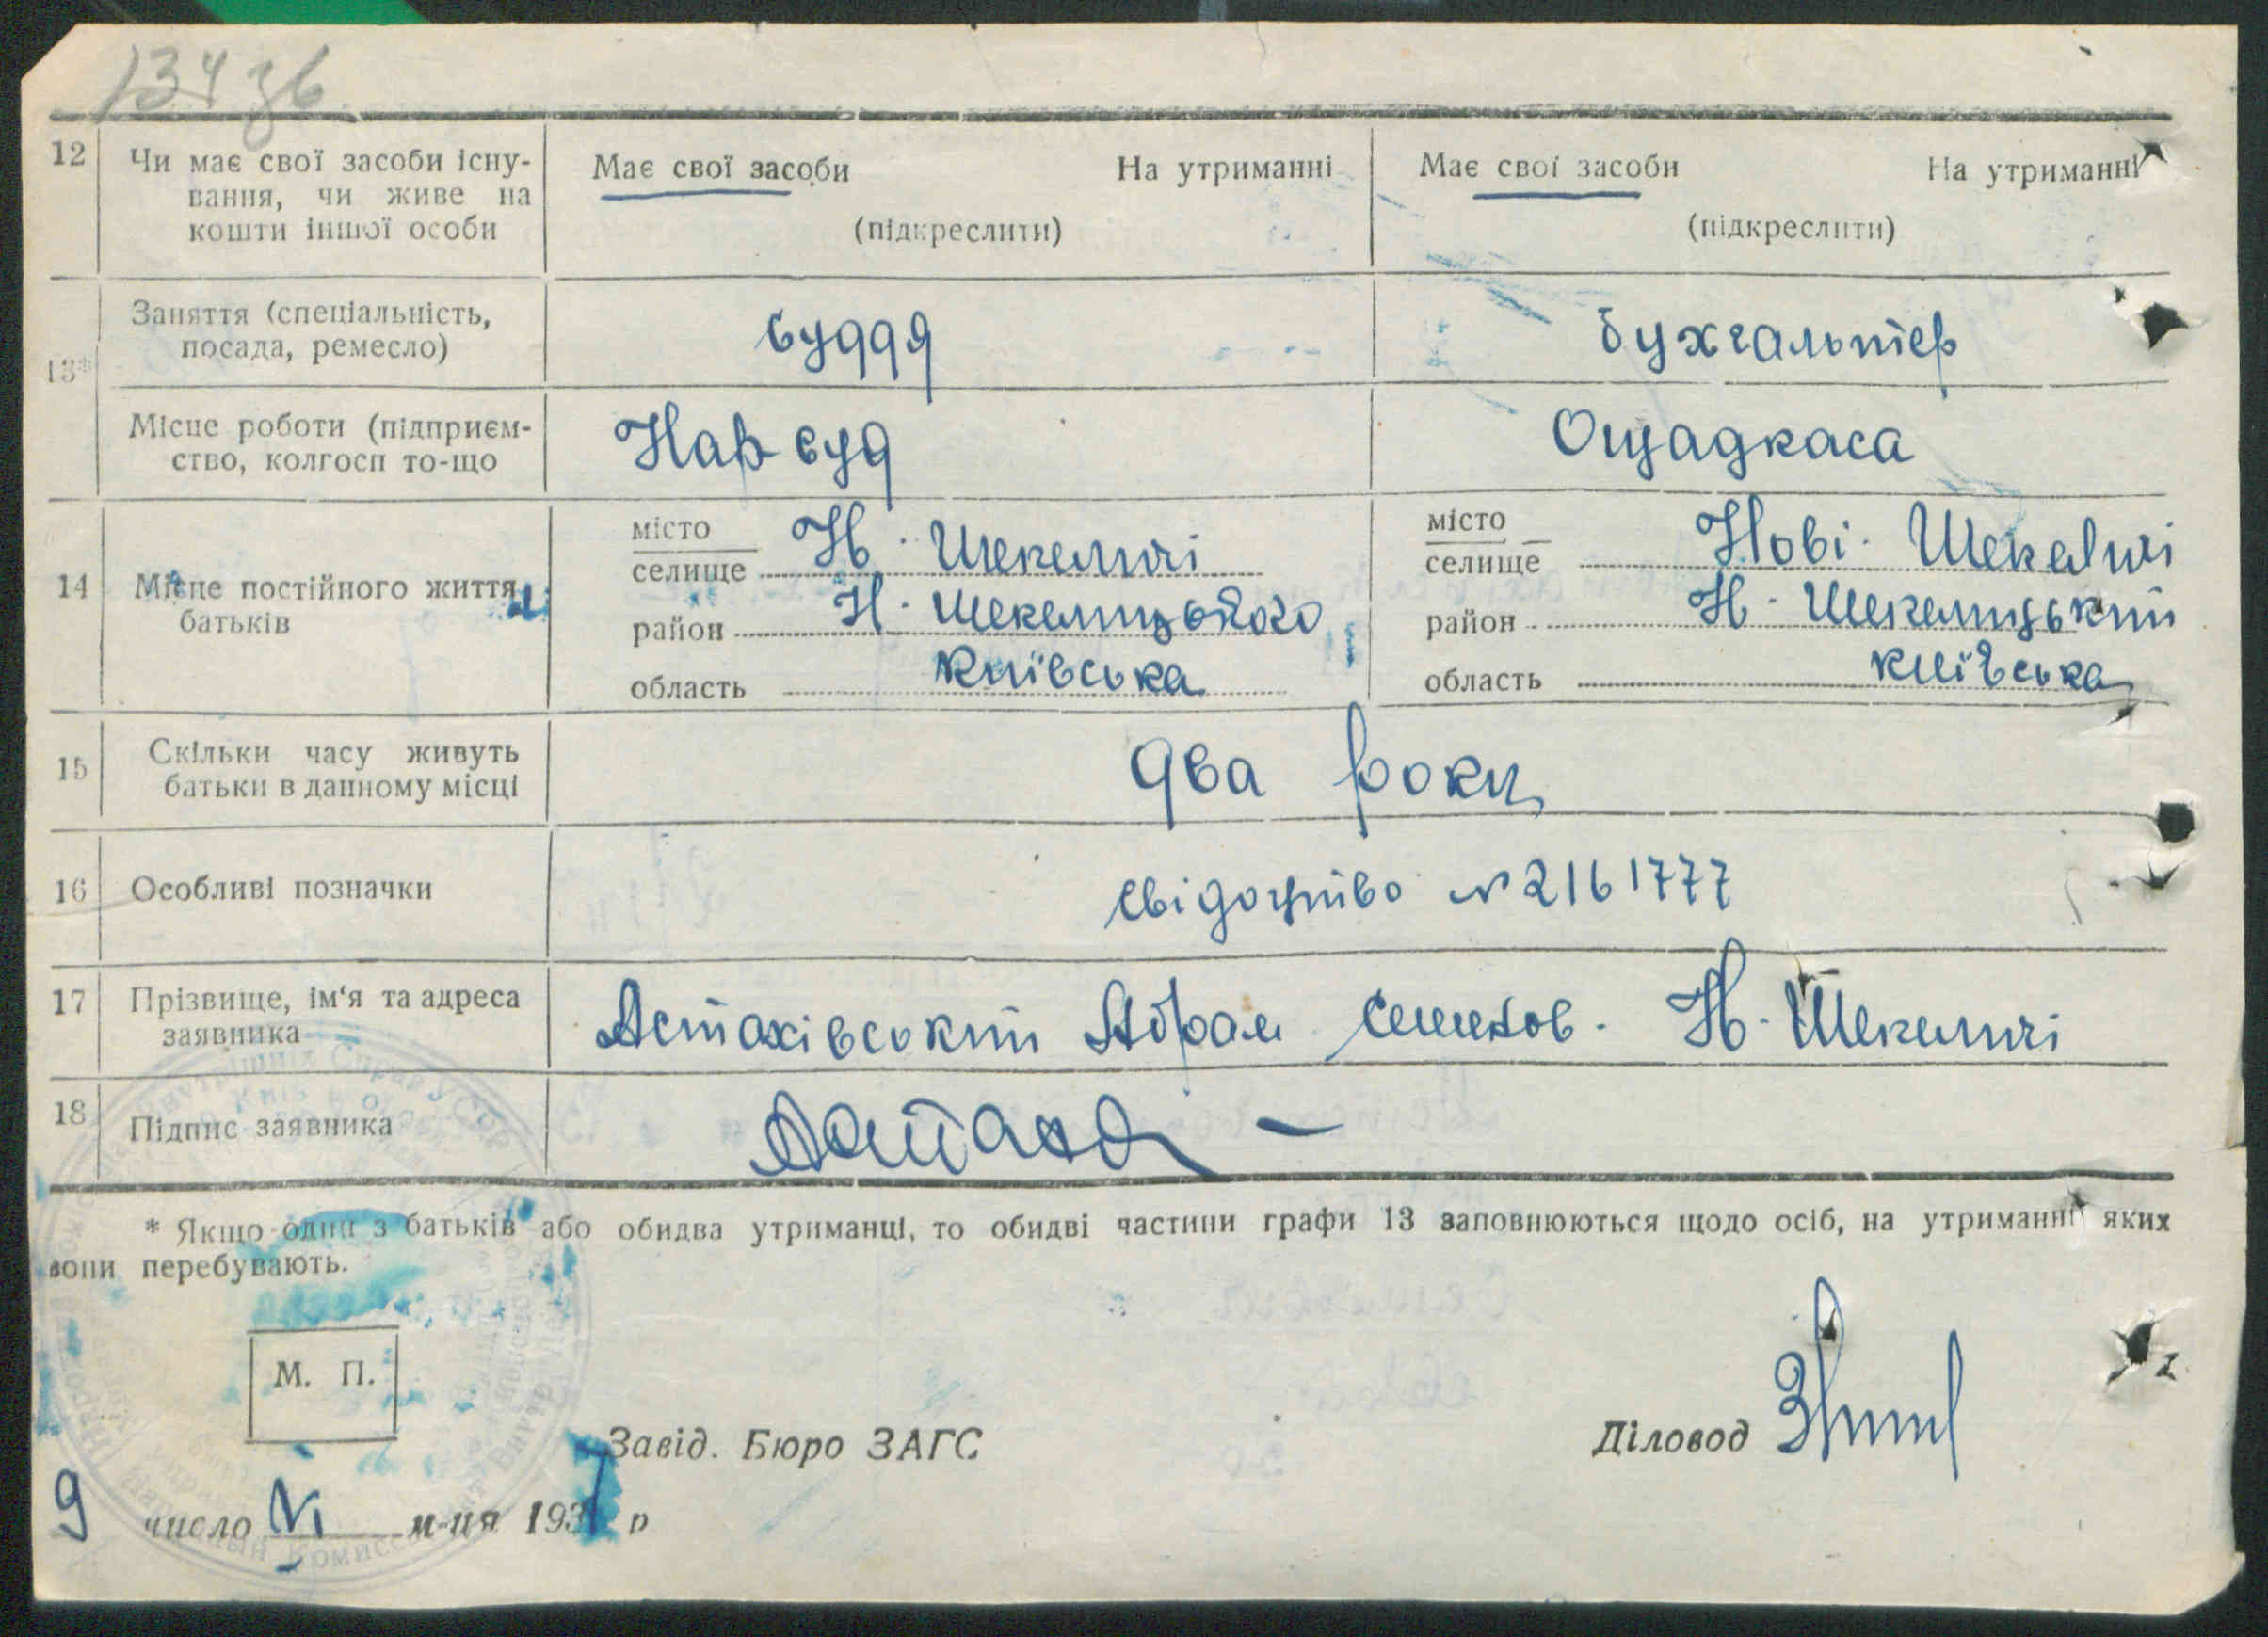 134 зв
12 Чи має свої засоби існу- Має свої засоби На утриманні Має свої засоби На утриманні
вання, чи живе на
кошти іншої особи (підкреслити) (підкреслити)
13* Заняття (спеціальність, суддя бухгальтер
посада, ремесло)
Місце роботи (підприєм- Нар суд Ощадкаса
ство, колгосп то-що
14 Місце постійного життя батьків
місто Н. Шекеличі місто Нові. Шекеличі
селище селище
район Н. Шекелицького район Н. Шекелицький
область Київська область київська
15 Скільки часу живуть два роки
батьки в данному місці
16 Особливі позначки свідоцтво № 2161777
17 Прізвище, ім'я та адреса Астахівський Абрам Н. Шекеличі
заявника
18 Підпис заявника
* Якщо один з батьків або обидва утриманці, то обидві частини графи 13 заповнюються щодо осіб, на утриманні яких
вони перебувають.
М. П.
Завід. Бюро ЗАГС Діловод
9 число VI м-ця 1937 р